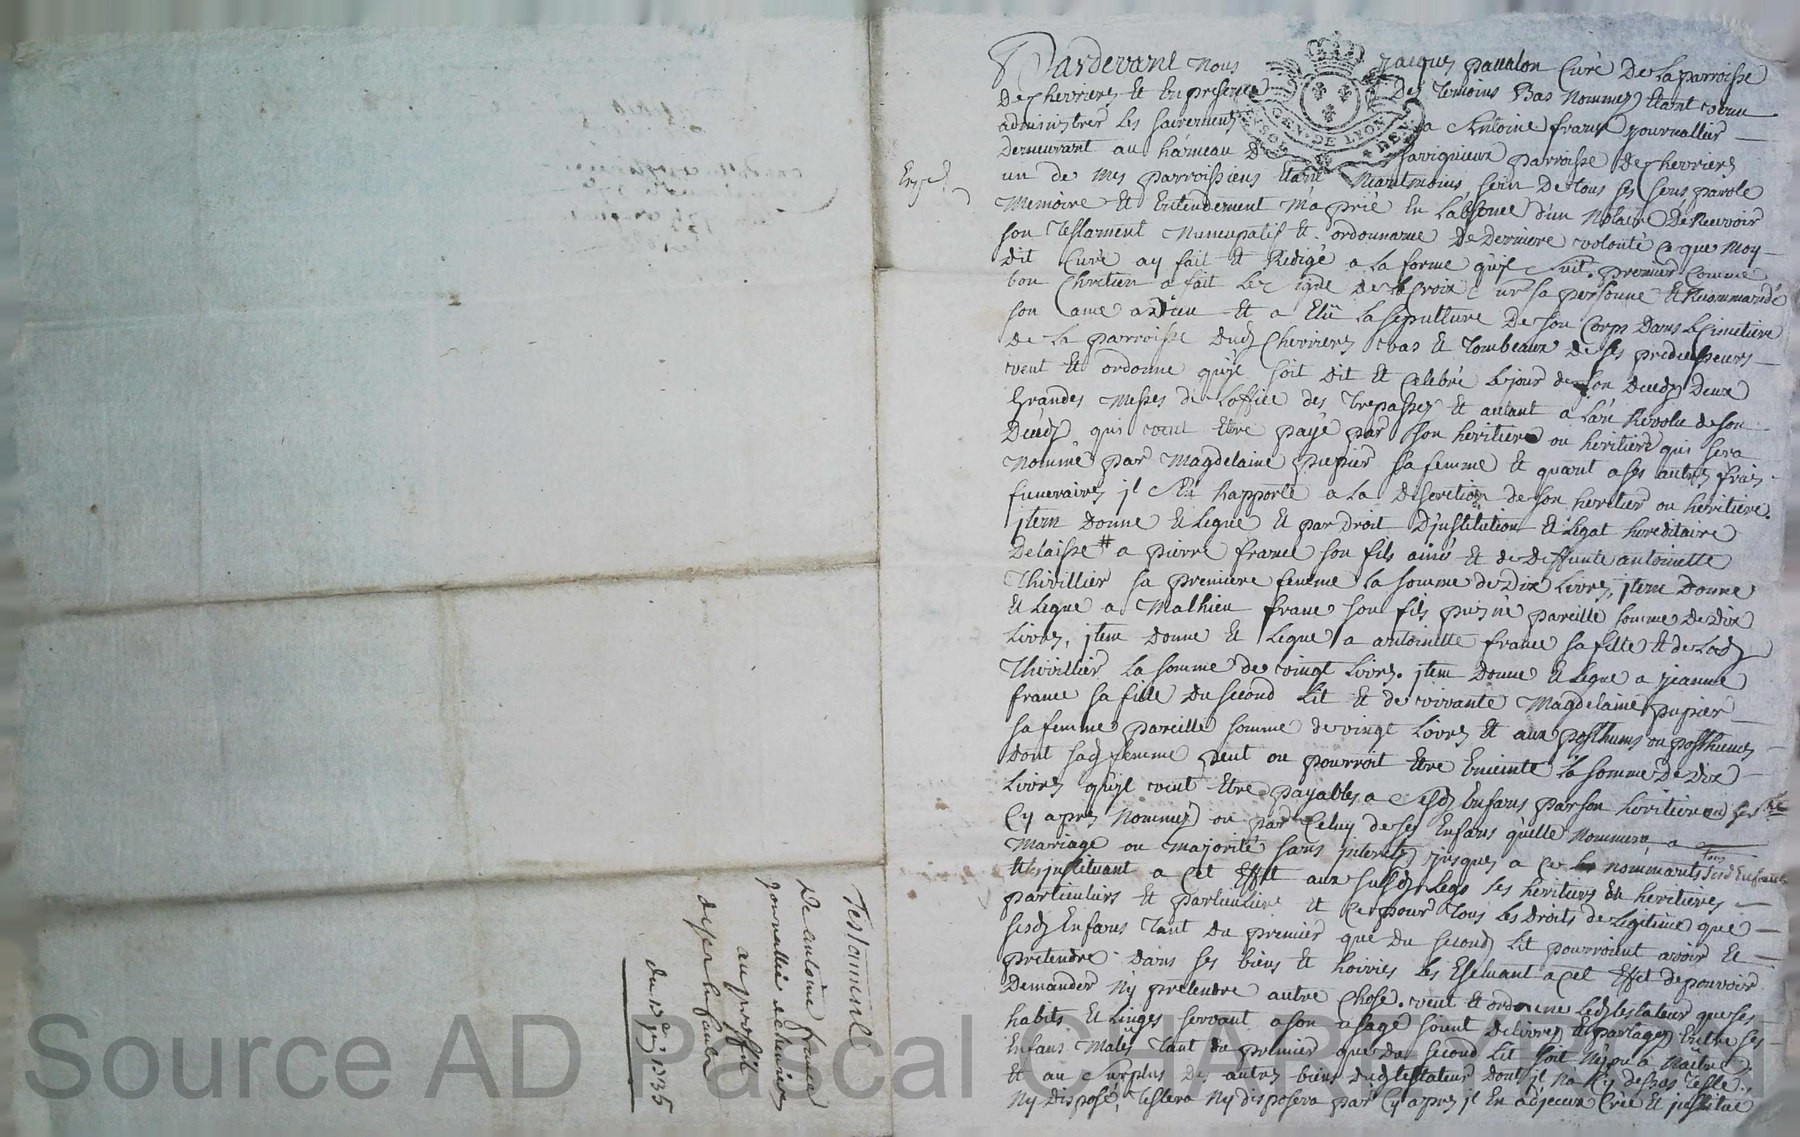 Pardevant Nous Jacques pavalon Curé De La parroisse
De Chevrieres Et En presence Des Temoins Bas Nommez Etant venu
administrer Les sacremens a Antoine france journallier
demeurant au hameau De Savignieux parroisse De Chevrieres
un de Mes parroissiens Etant Neantmoins sein De tous ses sens parole
Memoire Et Entendement Ma prié En L'absence D'un Notaire De Recevoir
son Testament Nuncupatif Et ordonnance De Derniere volonté Ce que Moy
dit Curé ay fait Et Redigé a La forme qu'il suit. premier Comme
bon Chretien a fait Le Signe De la Croix sur sa personne Et Recommandé
son ame a Dieu Et a Elü La sepulture De son Corps Dans Le Cimetiere
De La parroisse Dud Chevrieres vas Et Tombeaux De ses predecesseurs
veut Et ordonne qu'il soit Dit Et Celebré Le jour de son Deceds Deux
Grandes Messes De L'office des Trepassez Et autant a L'an Revolu de son
Deceds qui veut Etre payé par son heritier ou heritiere qui sera
Nommé par Magdelaine pupier sa femme Et quant a ses autres frais
funeraires il s'En Rapporte a La Discretion de son heritier ou heritiere.
jtem Donne Et Legue Et par droit D'institution Et Legat hereditaire
Delaisse # a pierre france son fils ainé Et de Deffunte antoinette
Thivillier sa premiere femme La somme de Dix Livres, jtem Donne
Et Legue a Mathieu france son fils puisné pareille somme De Dix
Livres, jtem Donne Et Legue a antoinette france sa fille Et de Lad
Thivillier La somme de vingt Livres. jtem Donne Et Legue a jeanne
france sa fille Du second Lit Et de vivante Magdelaine pupier
sa femme pareille somme de vingt Livres Et aux posthumes ou posthumes
Dont sad femme peut ou pourroit Etre Enceinte La somme De Dix
Livres qu'il veut Etre payables a sesd Enfans par son heritiere
Cy apres Nommée ou par Celuy de ses Enfans qu'elle Nommera, a
Mariage ou majorité sans interets jusques a Ce Nommants sesd Enfans
Et instituant a Cet Effet aux susd Legs ses heritiers Et heritieres
particuliers Et particulieres Et Ce pour Tous Les Droits de Legitime que
sesd Enfans Tant Du premier que Du second Lit pourroient avoir Et
pretendre Dans ses biens Et hoiries Les Excluant a Cet Effet de pouvoir
Demander Ny pretendre autre Chose. veut Et ordonne Led testateur que ses
habits Et Linges servant a son usage soient delivrez Et partagez Entre ses
Enfans Males Tant du premier que du second Lit soit Nez ou a Naitre
Et au surplus Des autres biens dud testateur Dont il Na Cy dessus Testé
Ny Disposé, Testera Ny disposera par Cy apres il En a de sceux Crée Et institué
GEN. DE LYON
Testament
De antoine france
journallier de chevrieres
au proffit
de ses Enfants
du 13e 1735
Source AD Pascal CHARTOMANT